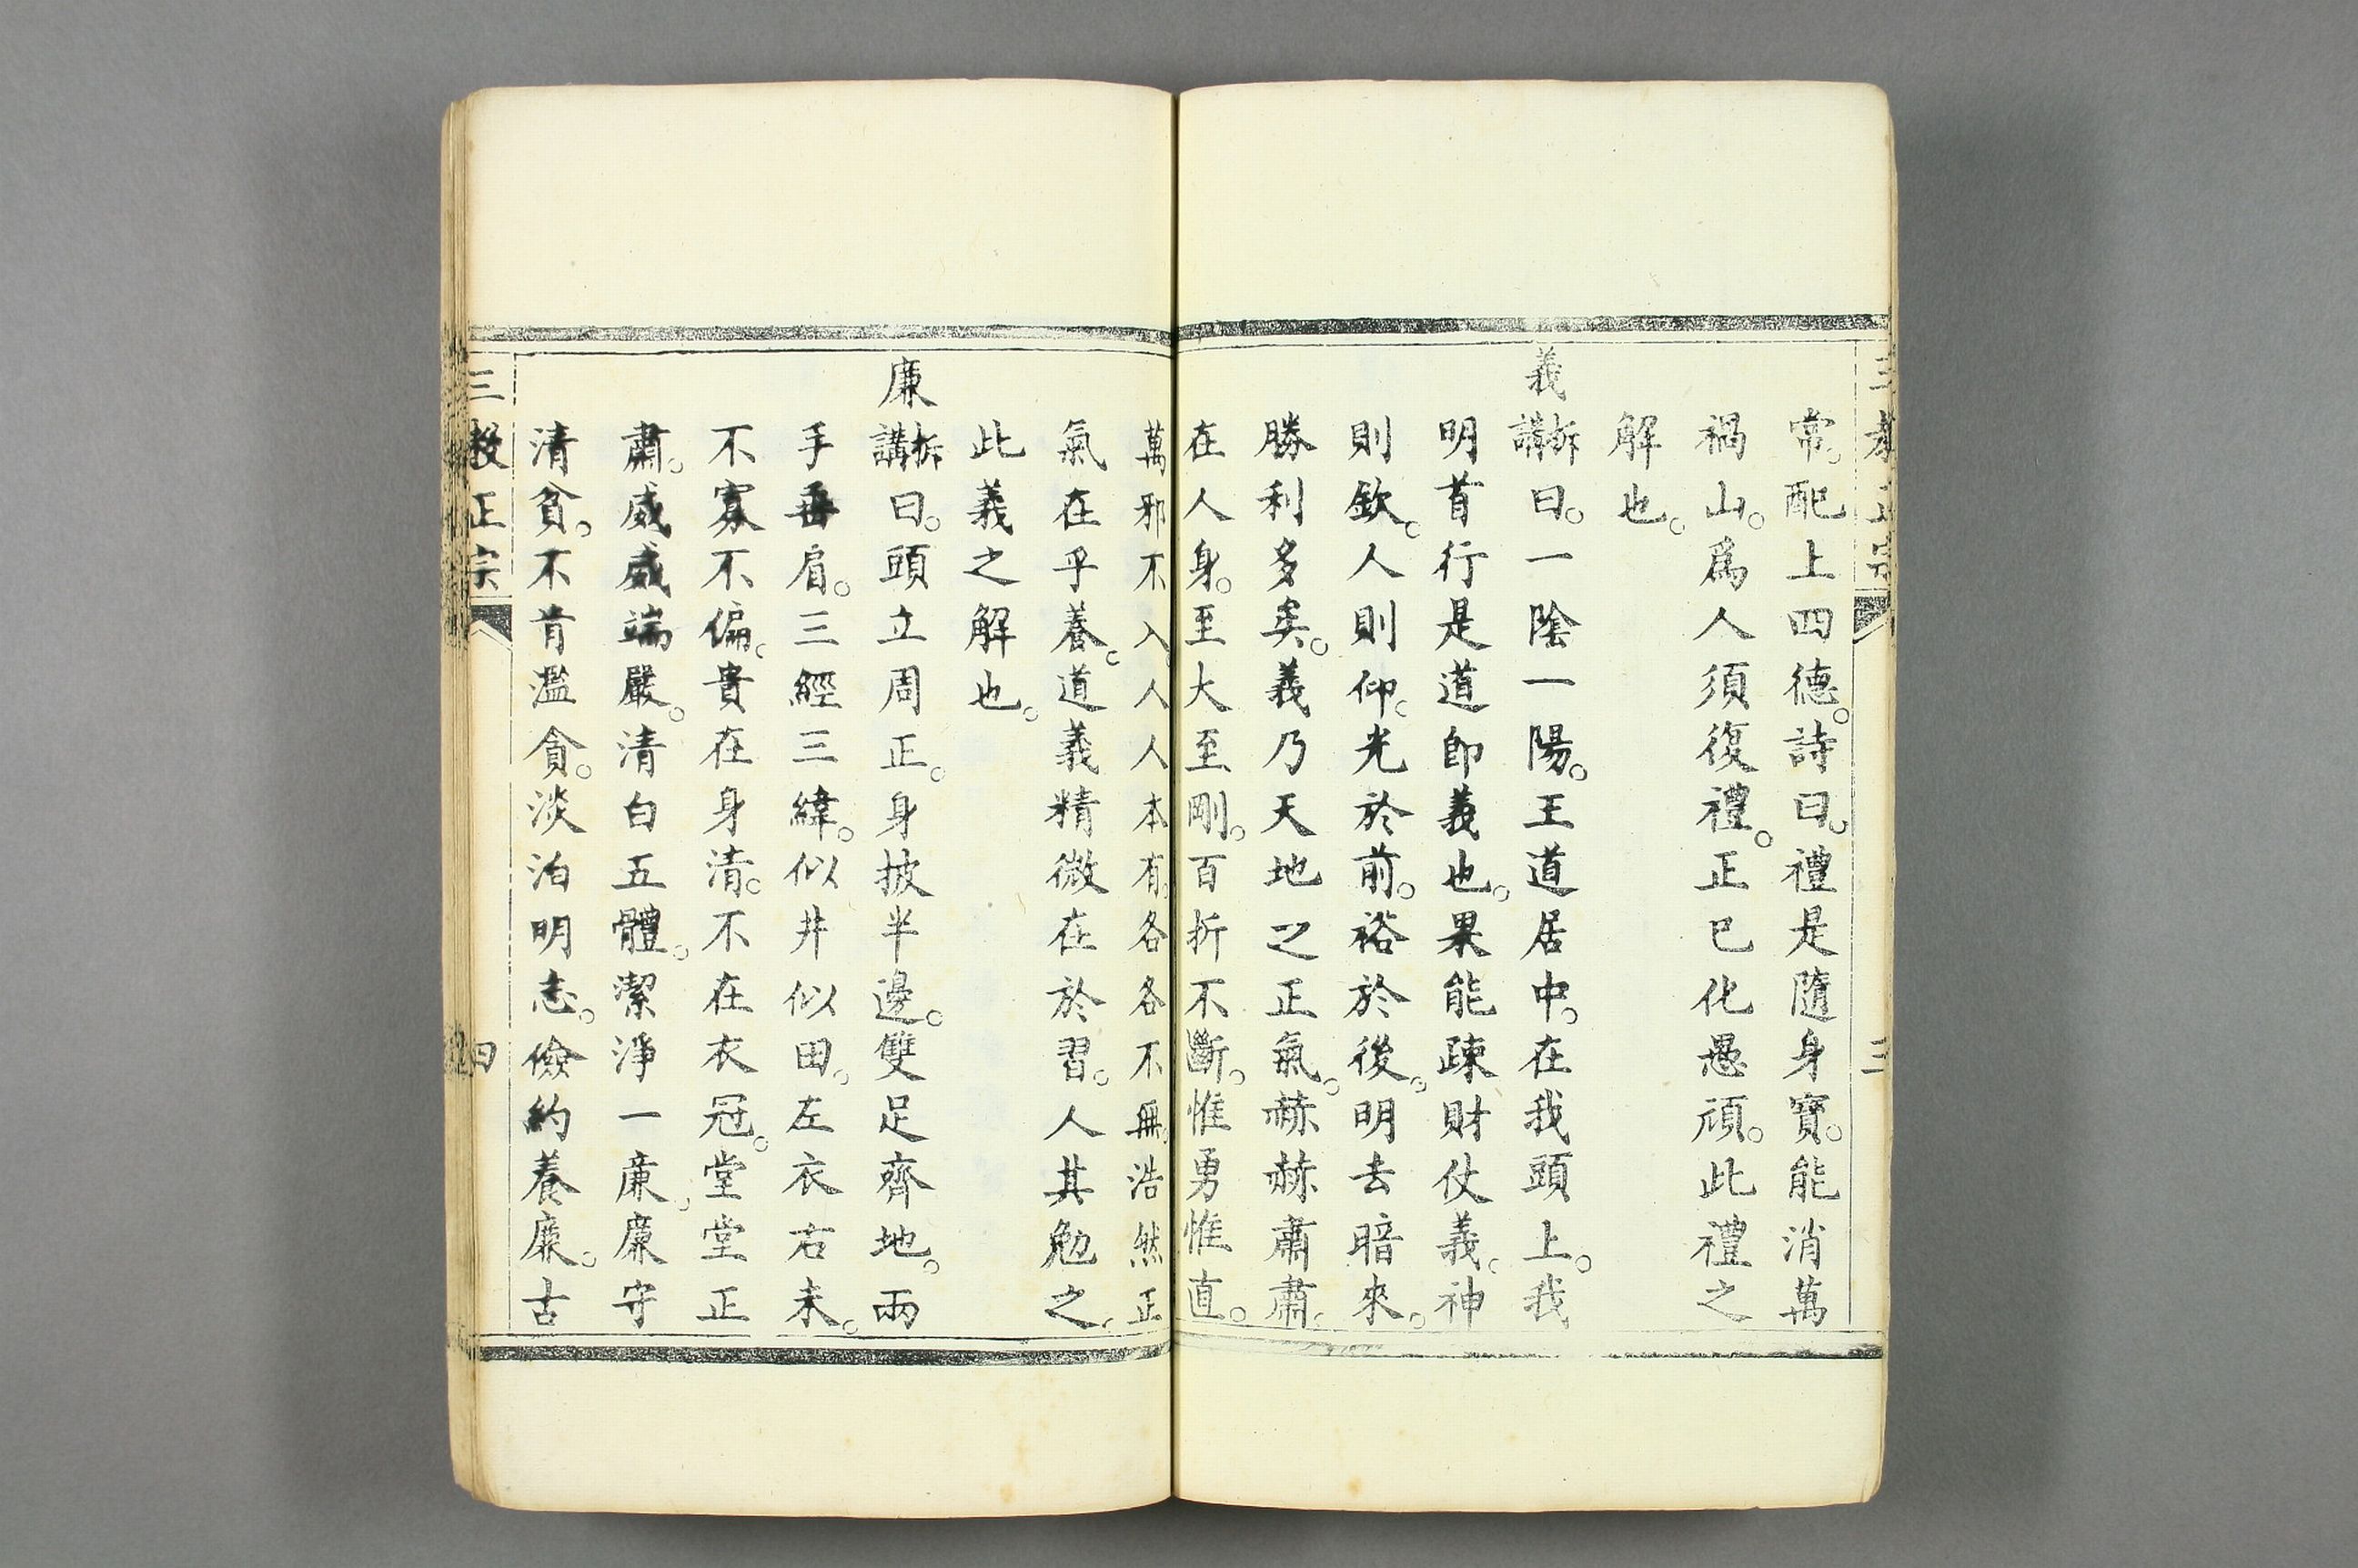 三教正宗 三
常。配上四德。詩曰。禮是隨身寶。能消萬
禍山。爲人須復禮。正已化愚頑。此禮之
解也。
義 拆講曰。一陰一陽。王道居中。在我頭上。我
明首行是道卽義也。果能疎財仗義。神
則欽。人則仰。光於前。裕於後。明去暗來。
勝利多矣。義乃天地之正氣。赫赫肅肅。
在人身。至大至剛。百折不斷。惟勇惟直。
萬邪不入。人人本有。各各不無。浩然正
氣在乎養。道義精微在於習。人其勉之。
此義之解也。
廉 拆講曰。頭立周正。身披半邊。雙足齊地。兩
手垂肩。三經三緯。似井似田。左衣右未。
不寡不偏。貴在身清。不在衣冠。堂堂正
肅。威威端嚴。清白五體。潔淨一廉。廉守
清貧。不肯濫貪。淡泊明志。儉約養廉。古
三教正宗 四